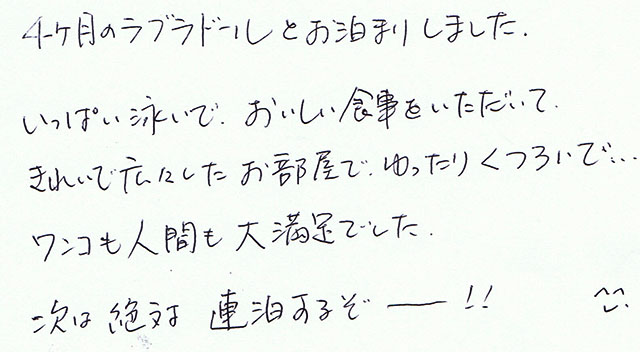 4ヶ月のラブラドールとお泊まりしました.
いっぱい泳いで、おいしい食事をいただいて.
きれいで広々したお部屋で、ゆったりくつろいで…
ワンコも人間も大満足でした.
次は絶対 連泊するぞ ── !! ^^